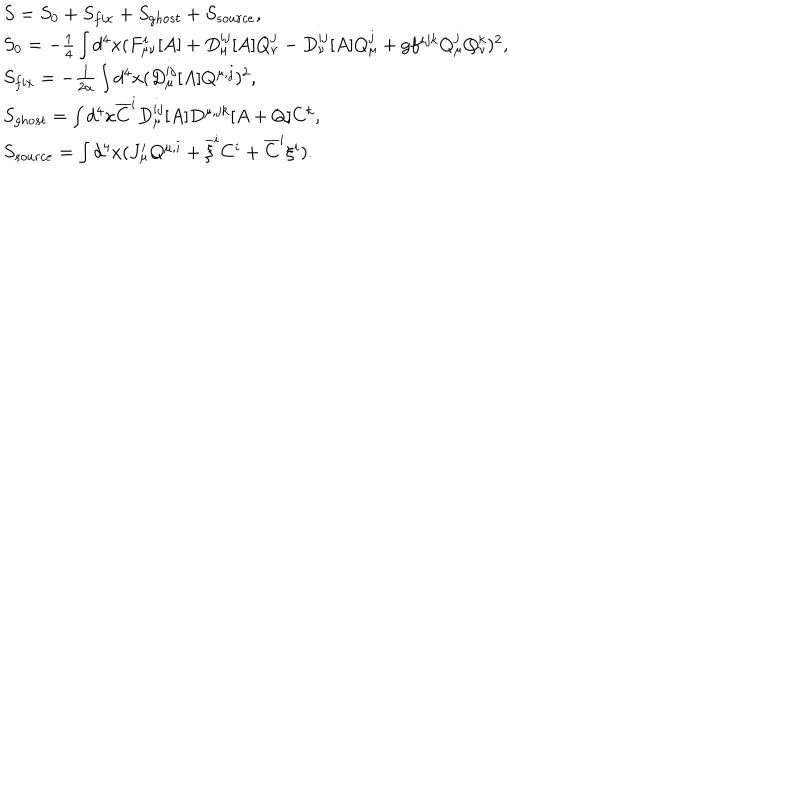 S = S_0 + S_{fix} + S_{ghost} + S_{source},
S_0 = -\frac{1}{4} \int d^4x (F^i_{\mu\nu}[A] + D^{ij}_\mu[A] Q^j_\nu - D^{ij}_\nu[A] Q^j_\mu + g f^{ijk} Q^j_\mu Q^k_\nu)^2,
S_{fix} = -\frac{1}{2\alpha} \int d^4x (D^{ij}_\mu[A] Q^{\mu,j})^2,
S_{ghost} = \int d^4x \overline{C}^i D^{ij}_\mu[A] D^{\mu,jk}[A+Q] C^k,
S_{source} = \int d^4x (J^i_\mu Q^{\mu,i} + \overline{\xi}^i C^i + \overline{C}^i \xi^i).